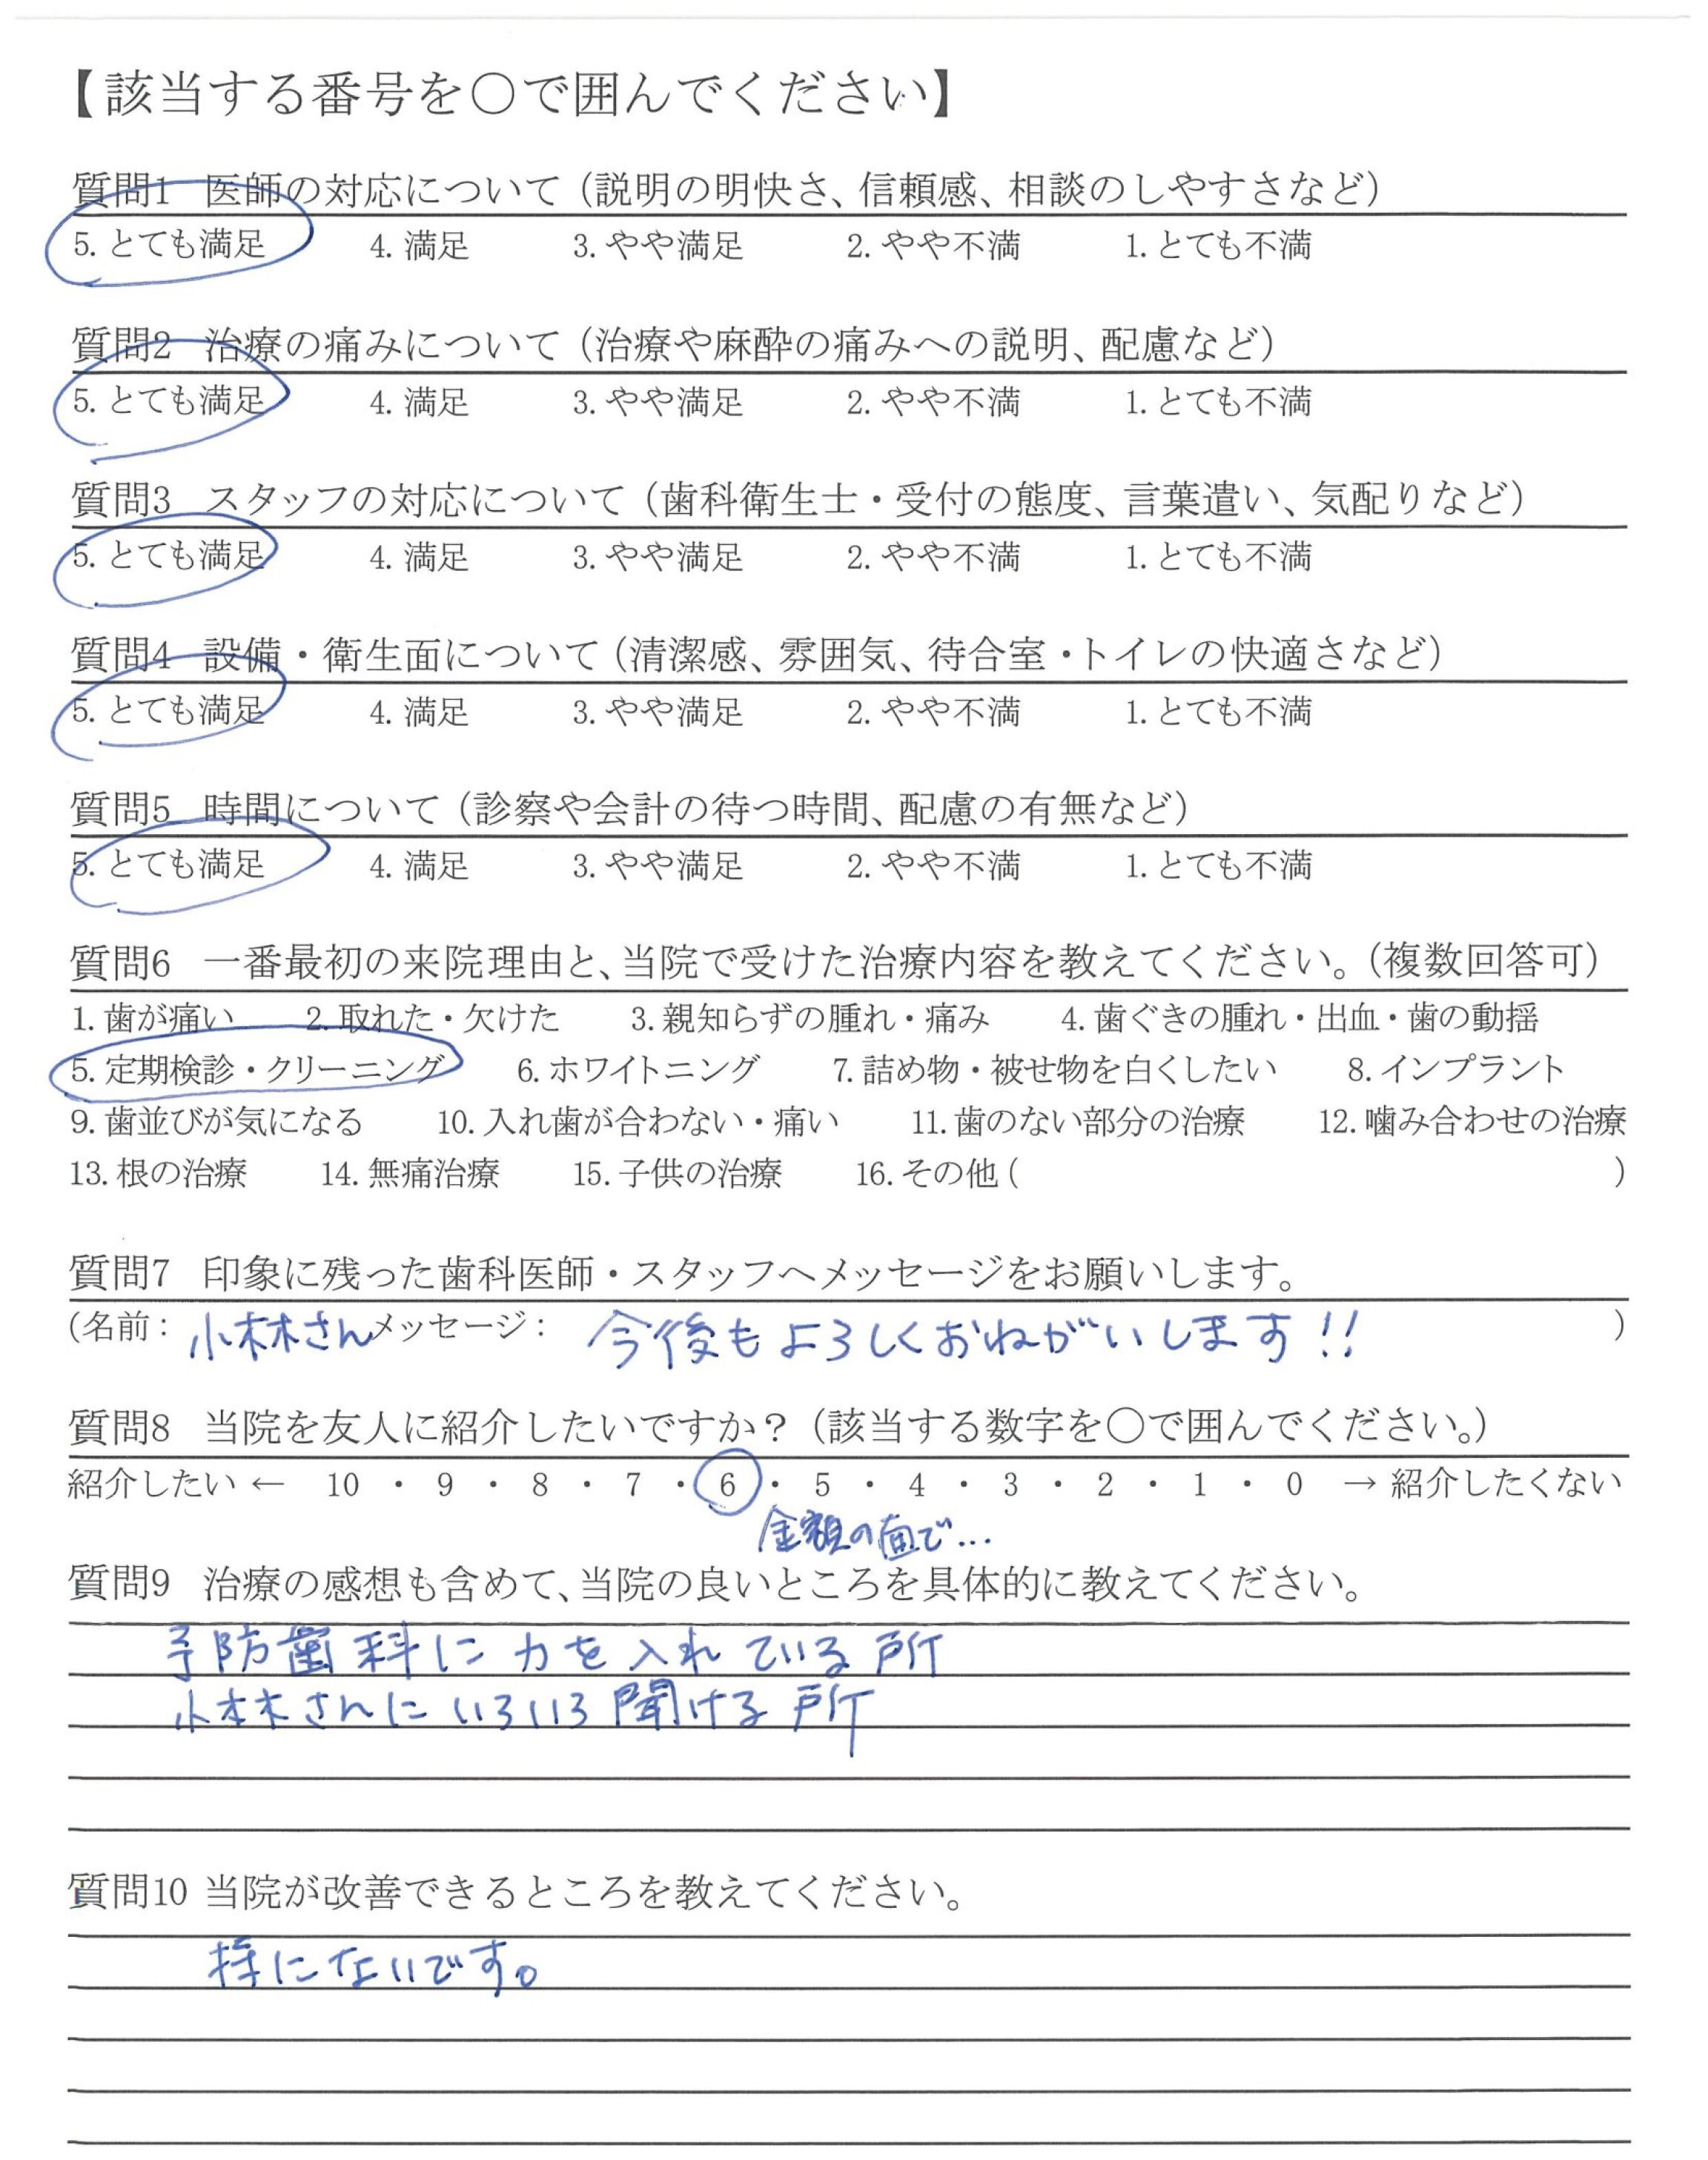 【該当する番号を〇で囲んでください】
質問1 医師の対応について（説明の明快さ、信頼感、相談のしやすさなど）
5. とても満足 4. 満足 3. やや満足 2. やや不満 1. とても不満
質問2 治療の痛みについて（治療や麻酔の痛みへの説明、配慮など）
5. とても満足 4. 満足 3. やや満足 2. やや不満 1. とても不満
質問3 スタッフの対応について（歯科衛生士・受付の態度、言葉遣い、気配りなど）
5. とても満足 4. 満足 3. やや満足 2. やや不満 1. とても不満
質問4 設備・衛生面について（清潔感、雰囲気、待合室・トイレの快適さなど）
5. とても満足 4. 満足 3. やや満足 2. やや不満 1. とても不満
質問5 時間について（診察や会計の待つ時間、配慮の有無など）
5. とても満足 4. 満足 3. やや満足 2. やや不満 1. とても不満
質問6 一番最初の来院理由と、当院で受けた治療内容を教えてください。（複数回答可）
1. 歯が痛い 2. 取れた・欠けた 3. 親知らずの腫れ・痛み 4. 歯ぐきの腫れ・出血・歯の動揺
5. 定期検診・クリーニング 6. ホワイトニング 7. 詰め物・被せ物を白くしたい 8. インプラント
9. 歯並びが気になる 10. 入れ歯が合わない・痛い 11. 歯のない部分の治療 12. 噛み合わせの治療
13. 根の治療 14. 無痛治療 15. 子供の治療 16. その他（ ）
質問7 印象に残った歯科医師・スタッフへメッセージをお願いします。
（名前：小林さん メッセージ： 今後もよろしくおねがいします!! ）
質問8 当院を友人に紹介したいですか？（該当する数字を〇で囲んでください。）
紹介したい ← 10 ・ 9 ・ 8 ・ 7 ・ 6 ・ 5 ・ 4 ・ 3 ・ 2 ・ 1 ・ 0 → 紹介したくない
金額の面で…
質問9 治療の感想も含めて、当院の良いところを具体的に教えてください。
予防歯科に力を入れている所
小林さんにいろいろ聞ける所
質問10 当院が改善できるところを教えてください。
特にないです。